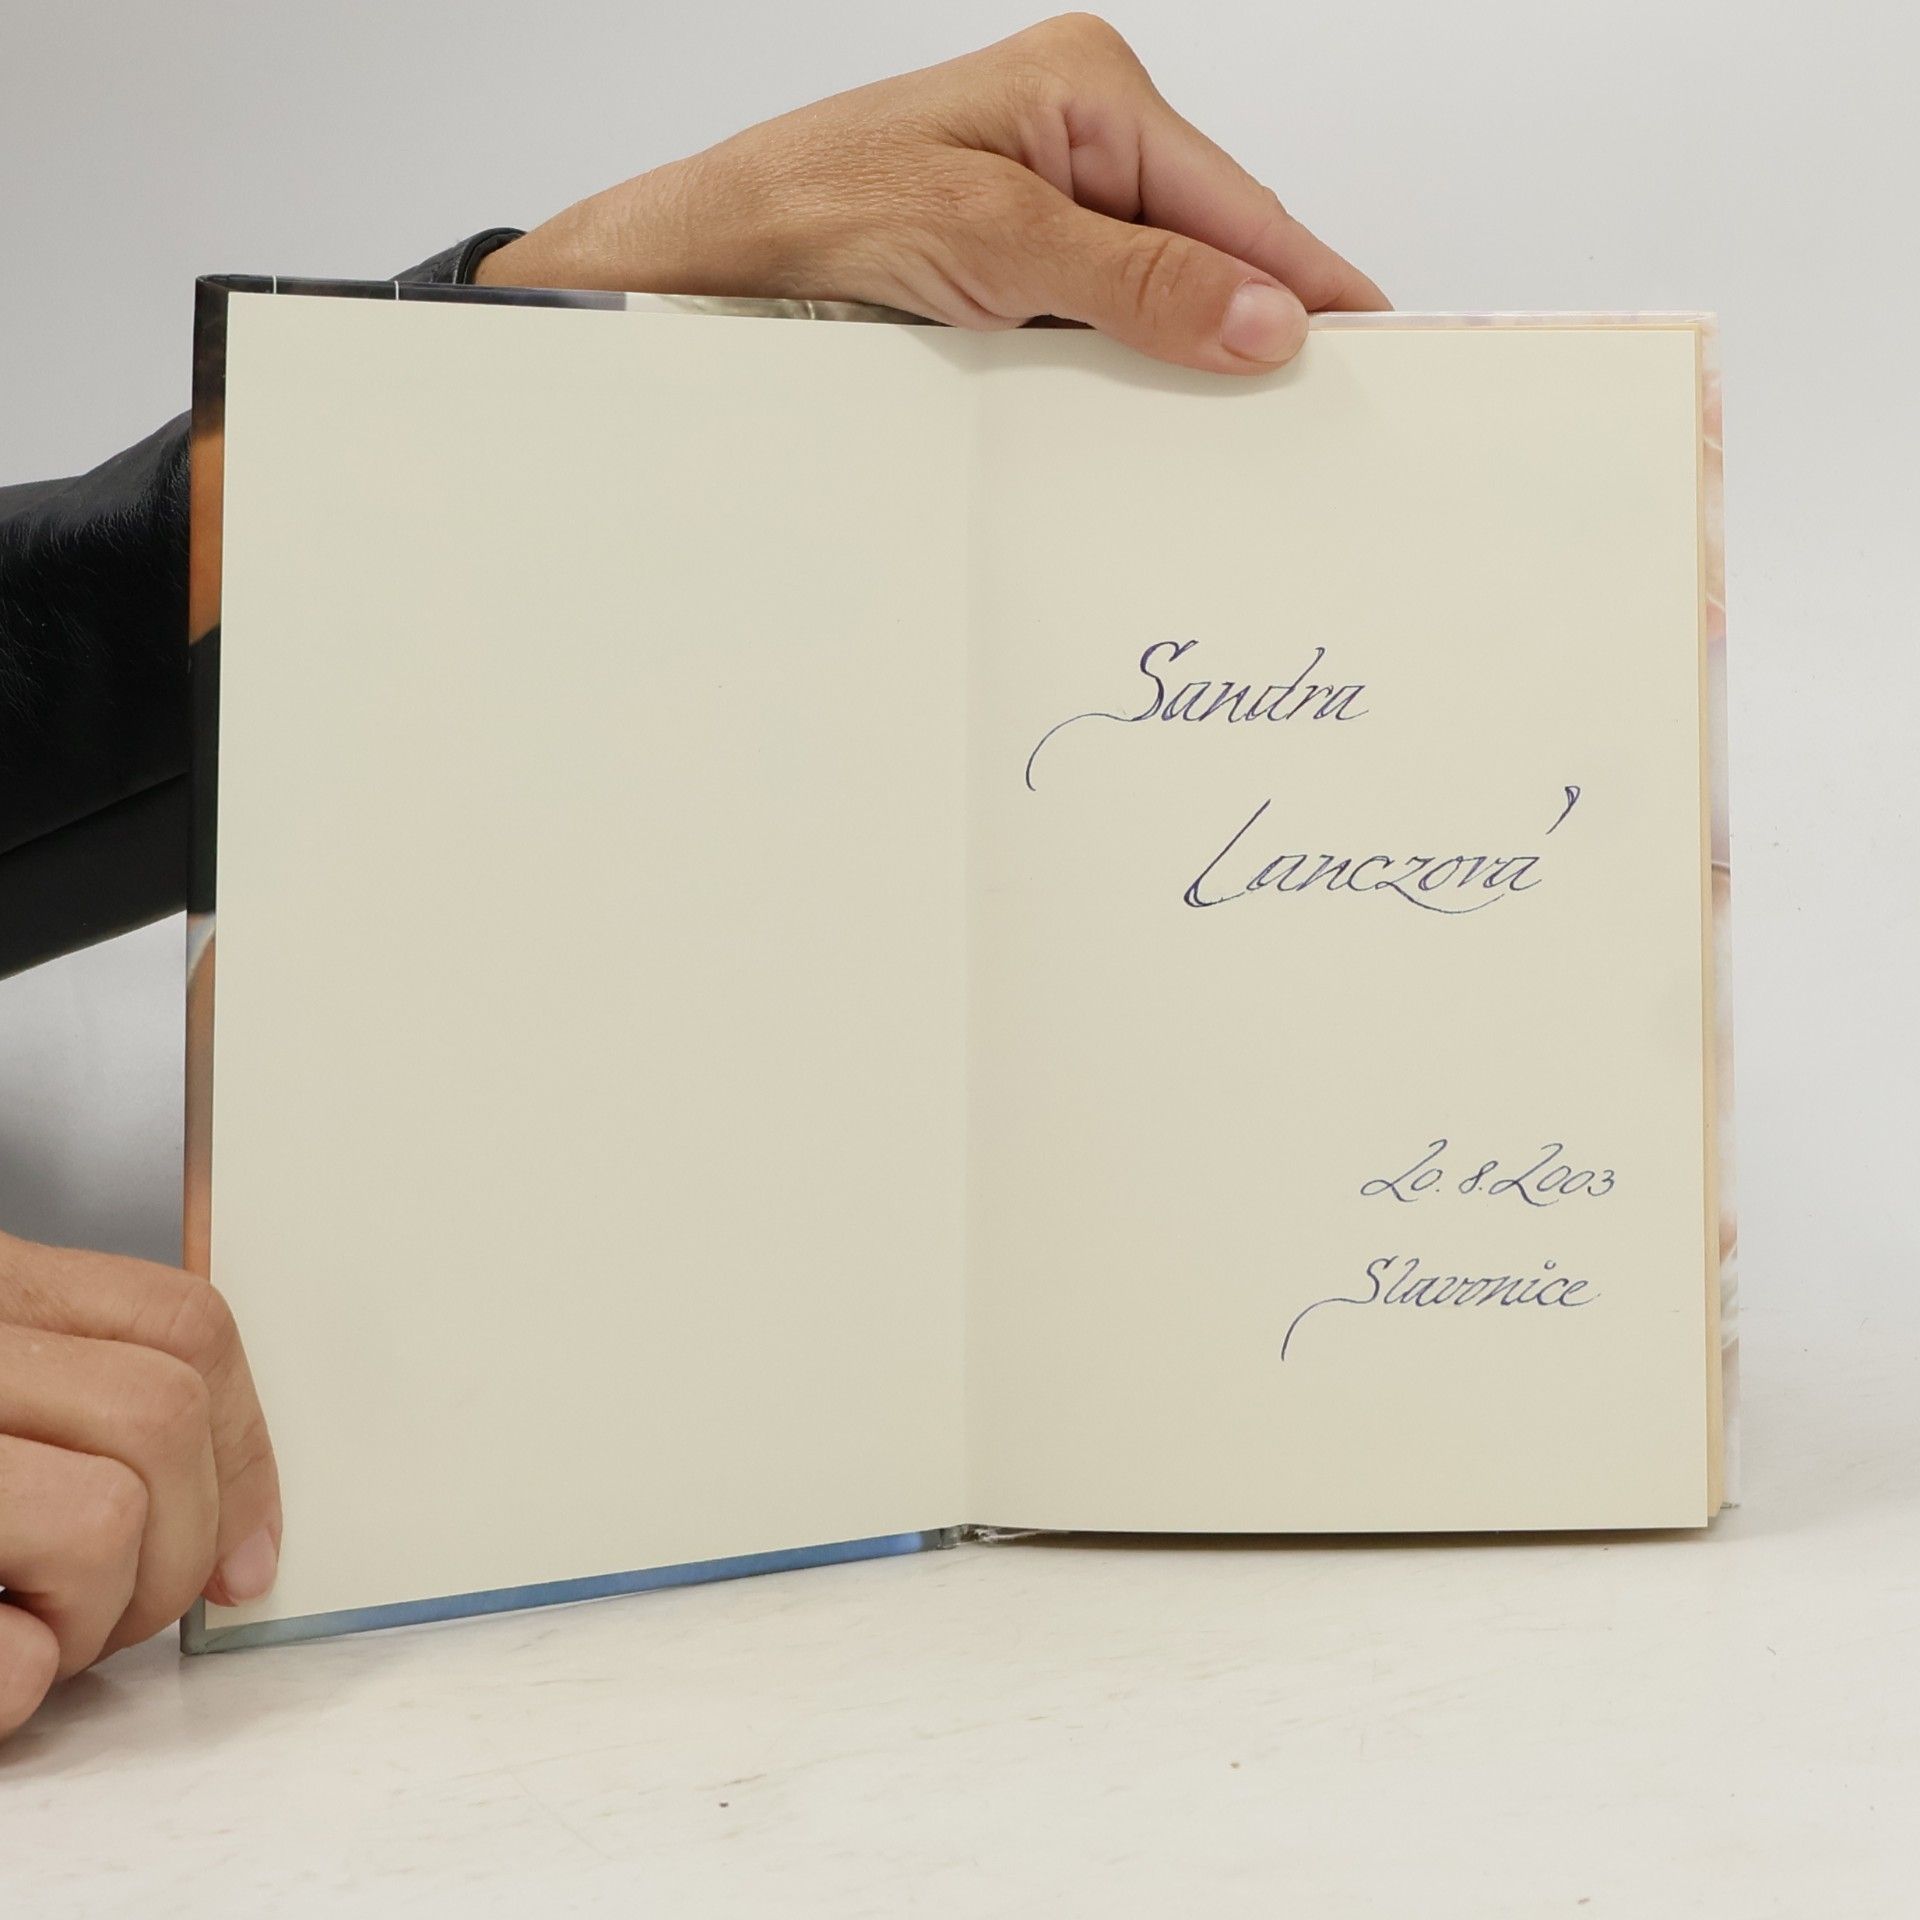 Sandra
Lanczová
20. 8. 2003
Slavonice